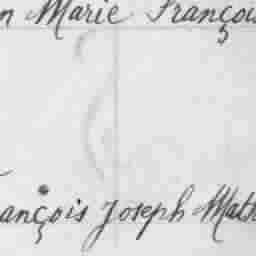 n Marie Françoi
ançois Joseph Math